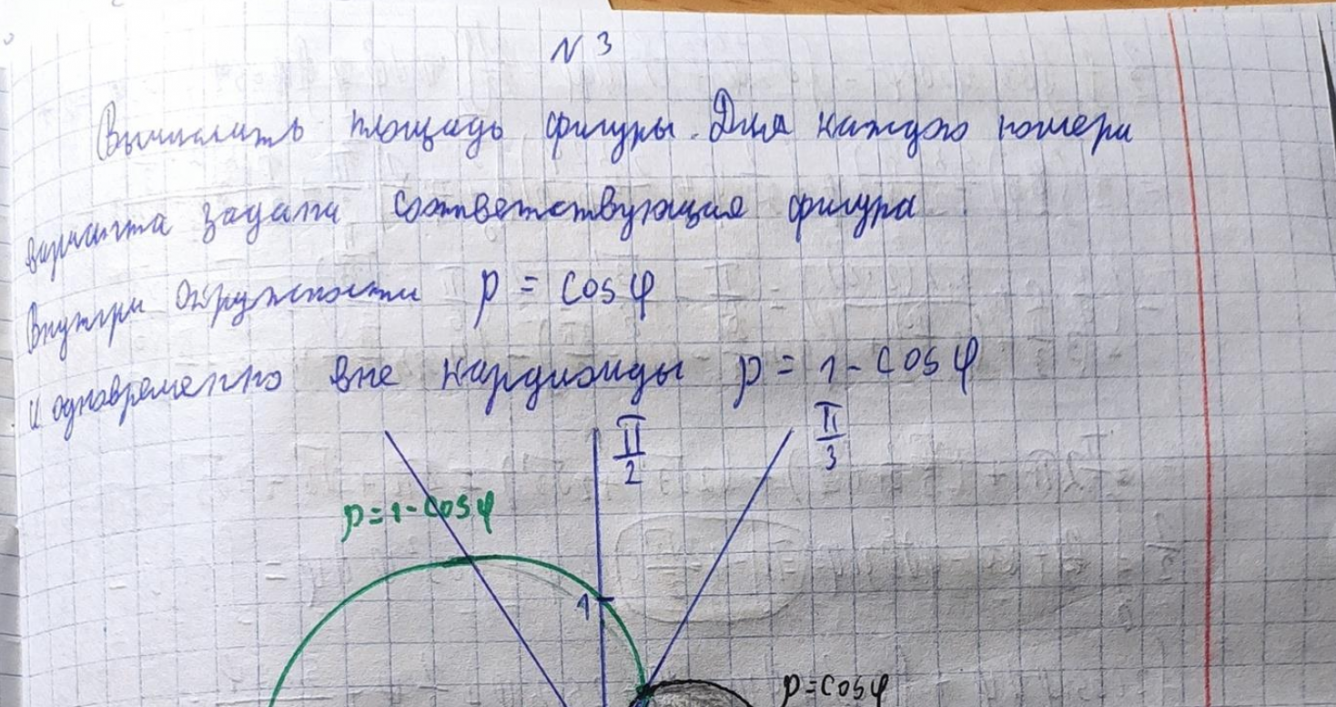 N 3
Вычислить площадь фигуры. Для каждого номера
варианта задана соответствующая фигура
Внутри окружности p = cos φ
и одновременно вне кардиоиды p = 1 - cos φ
π/2
π/3
p = 1 - cos φ
1
p = cos φ